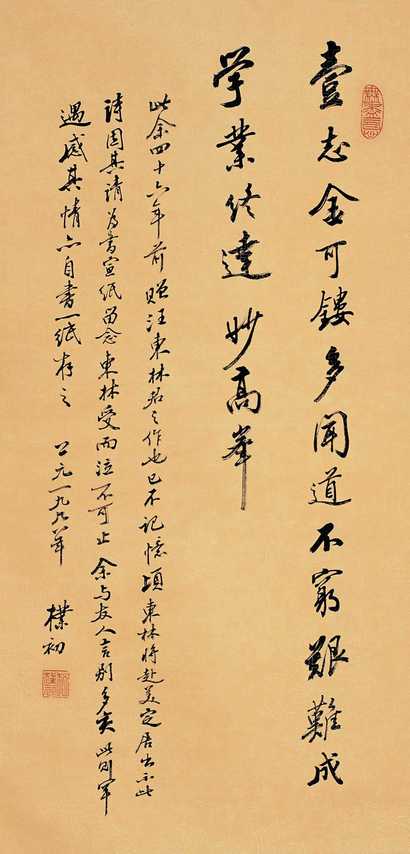 壹志金可鏤多聞道不窮艱難成
学業終達妙高峯
此余四十六年前贈汪東林君之作也已不記憶頃東林將赴美定居出示此
詩因其請為書宣紙留念東林受而泣不可止余与友人言别多矣此则罕
遇感其情亦自書一紙存之 公元一九九八年 樸初